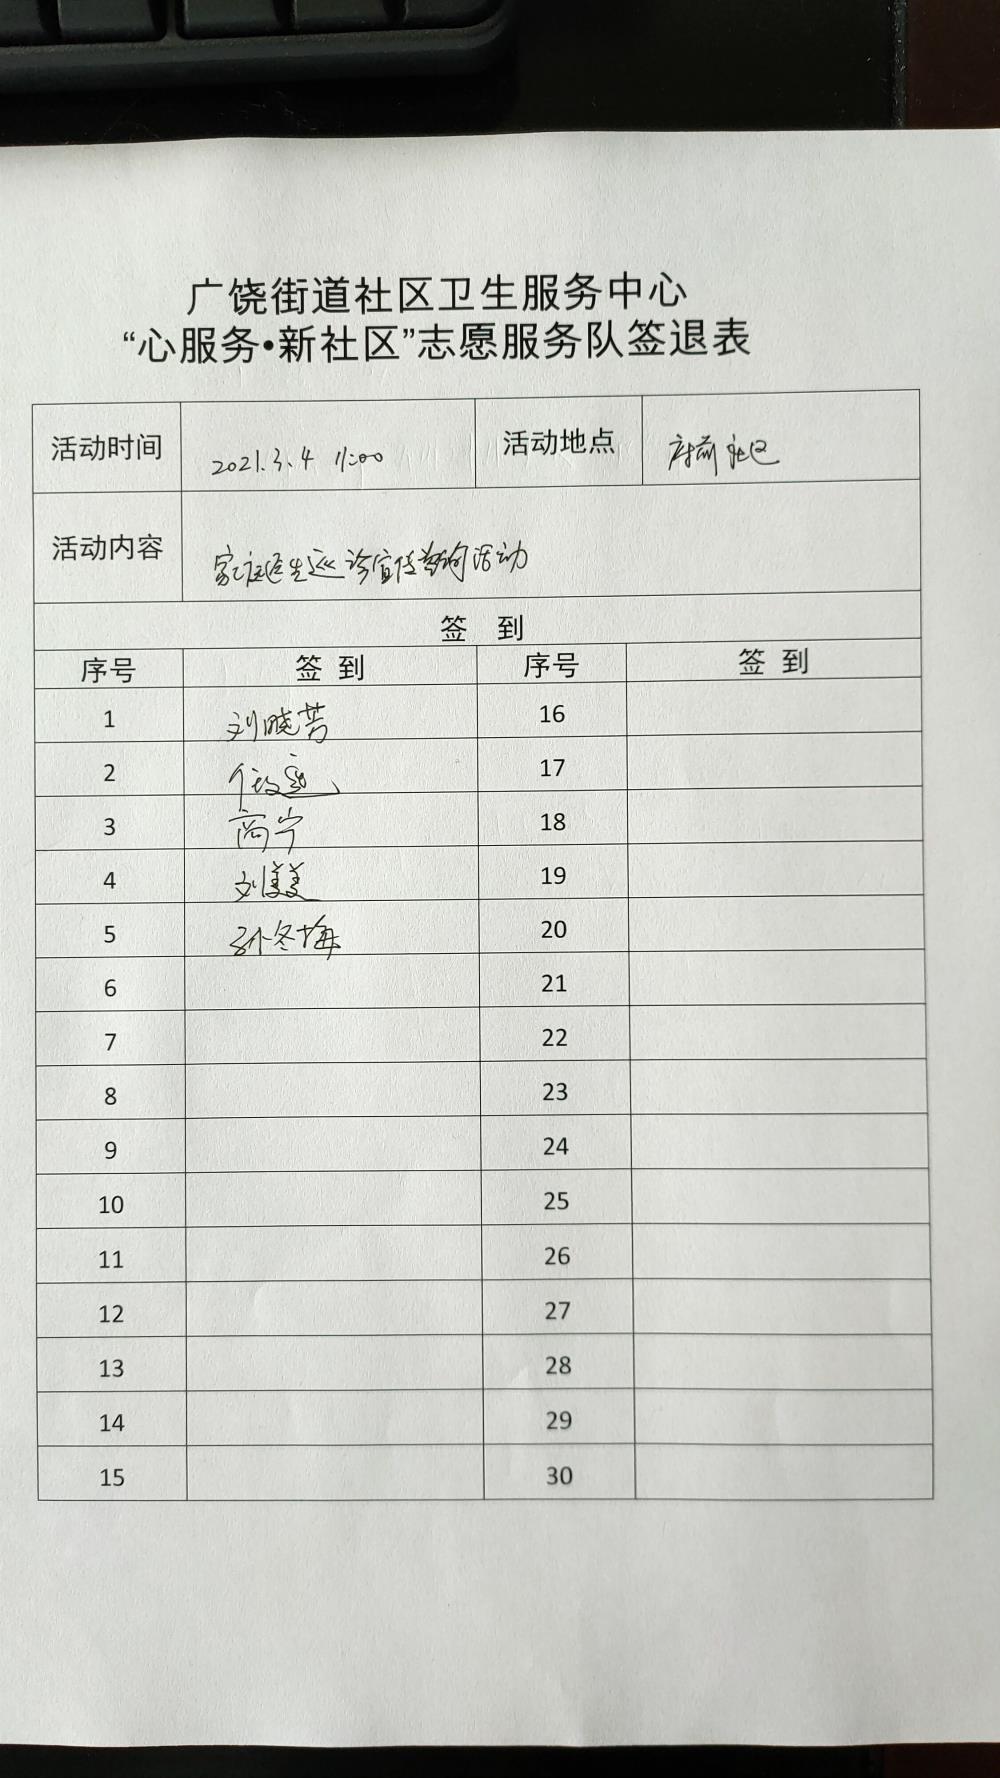 广饶街道社区卫生服务中心
“心服务•新社区”志愿服务队签退表
活动时间 2021.3.4 11:00 活动地点 府前社区
活动内容 家庭医生巡诊宣传活动
签 到
序号 签 到 序号 签 到
1 刘晓芳 16
2 17
3 高宁 18
4 刘美美 19
5 孙冬梅 20
6 21
7 22
8 23
9 24
10 25
11 26
12 27
13 28
14 29
15 30